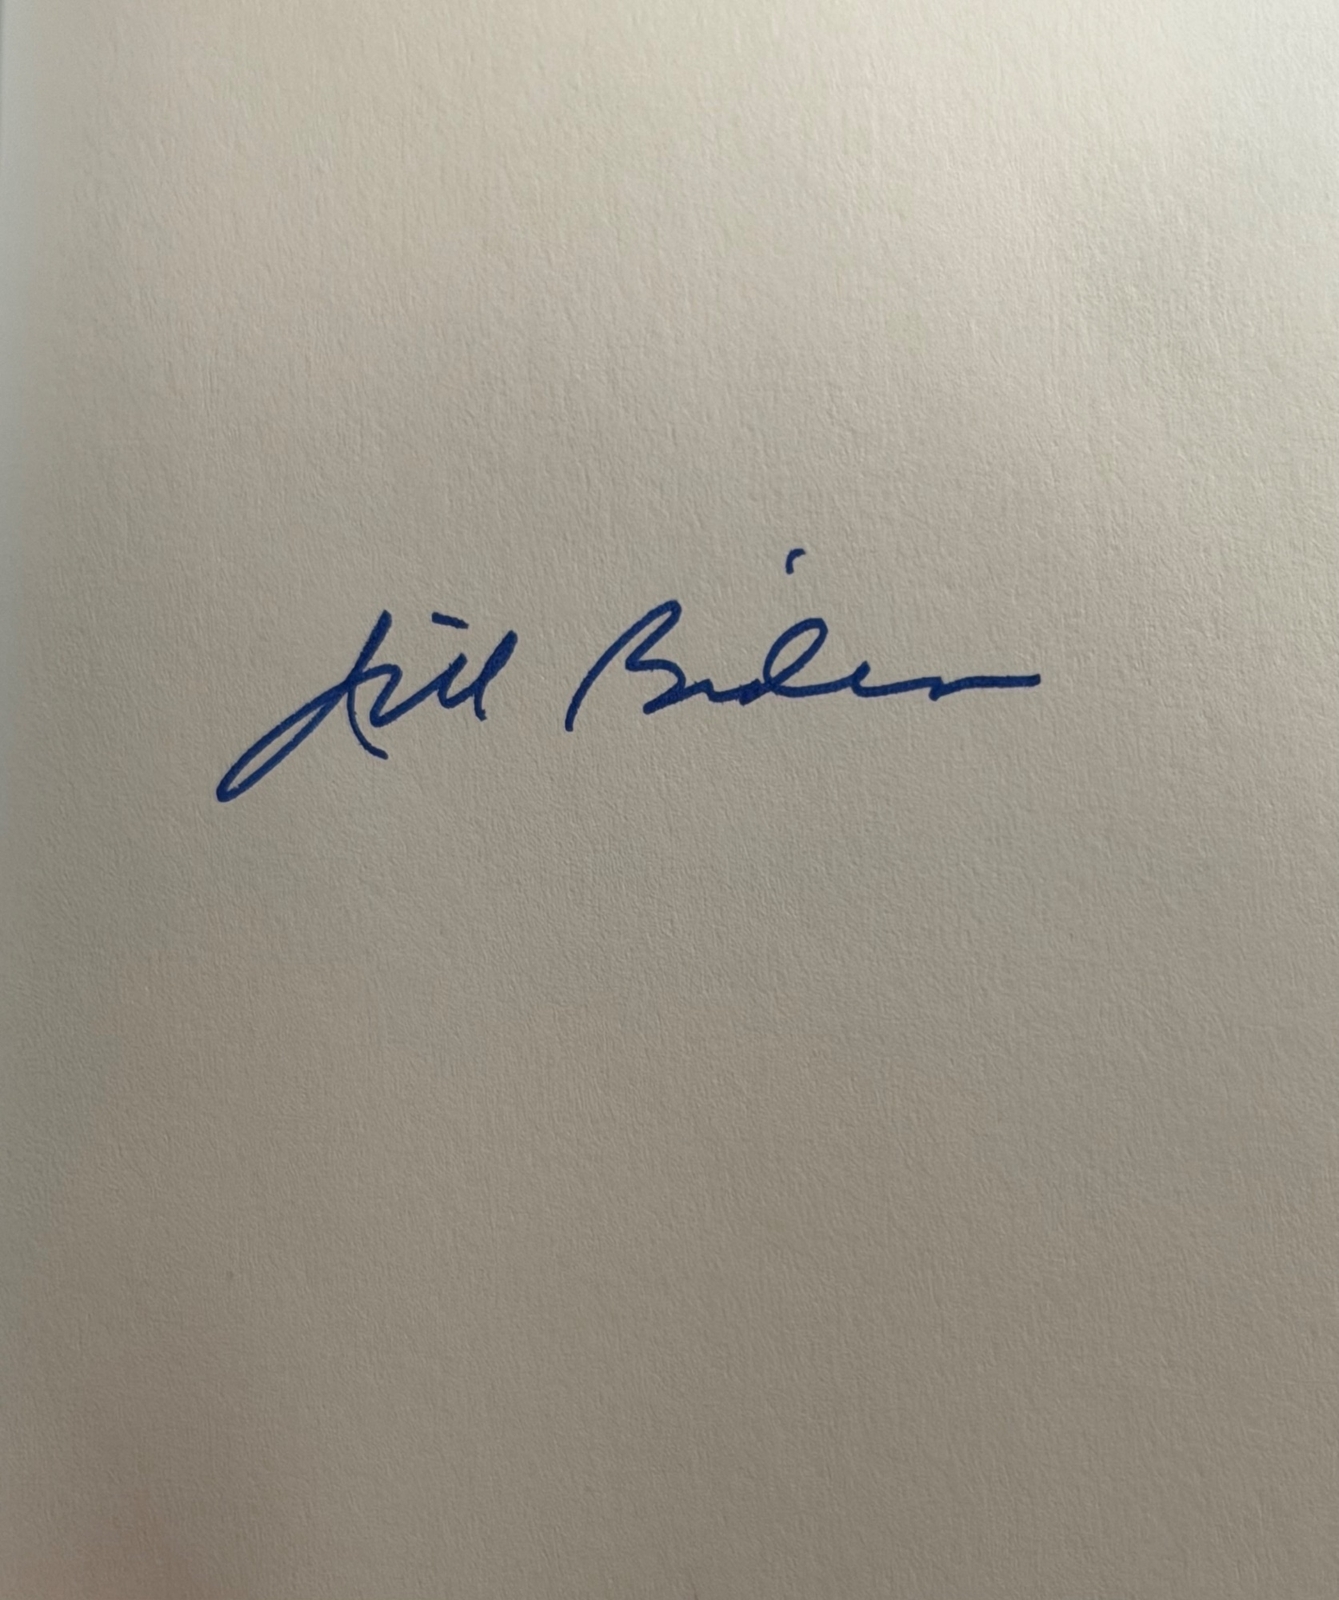 Jill Biden